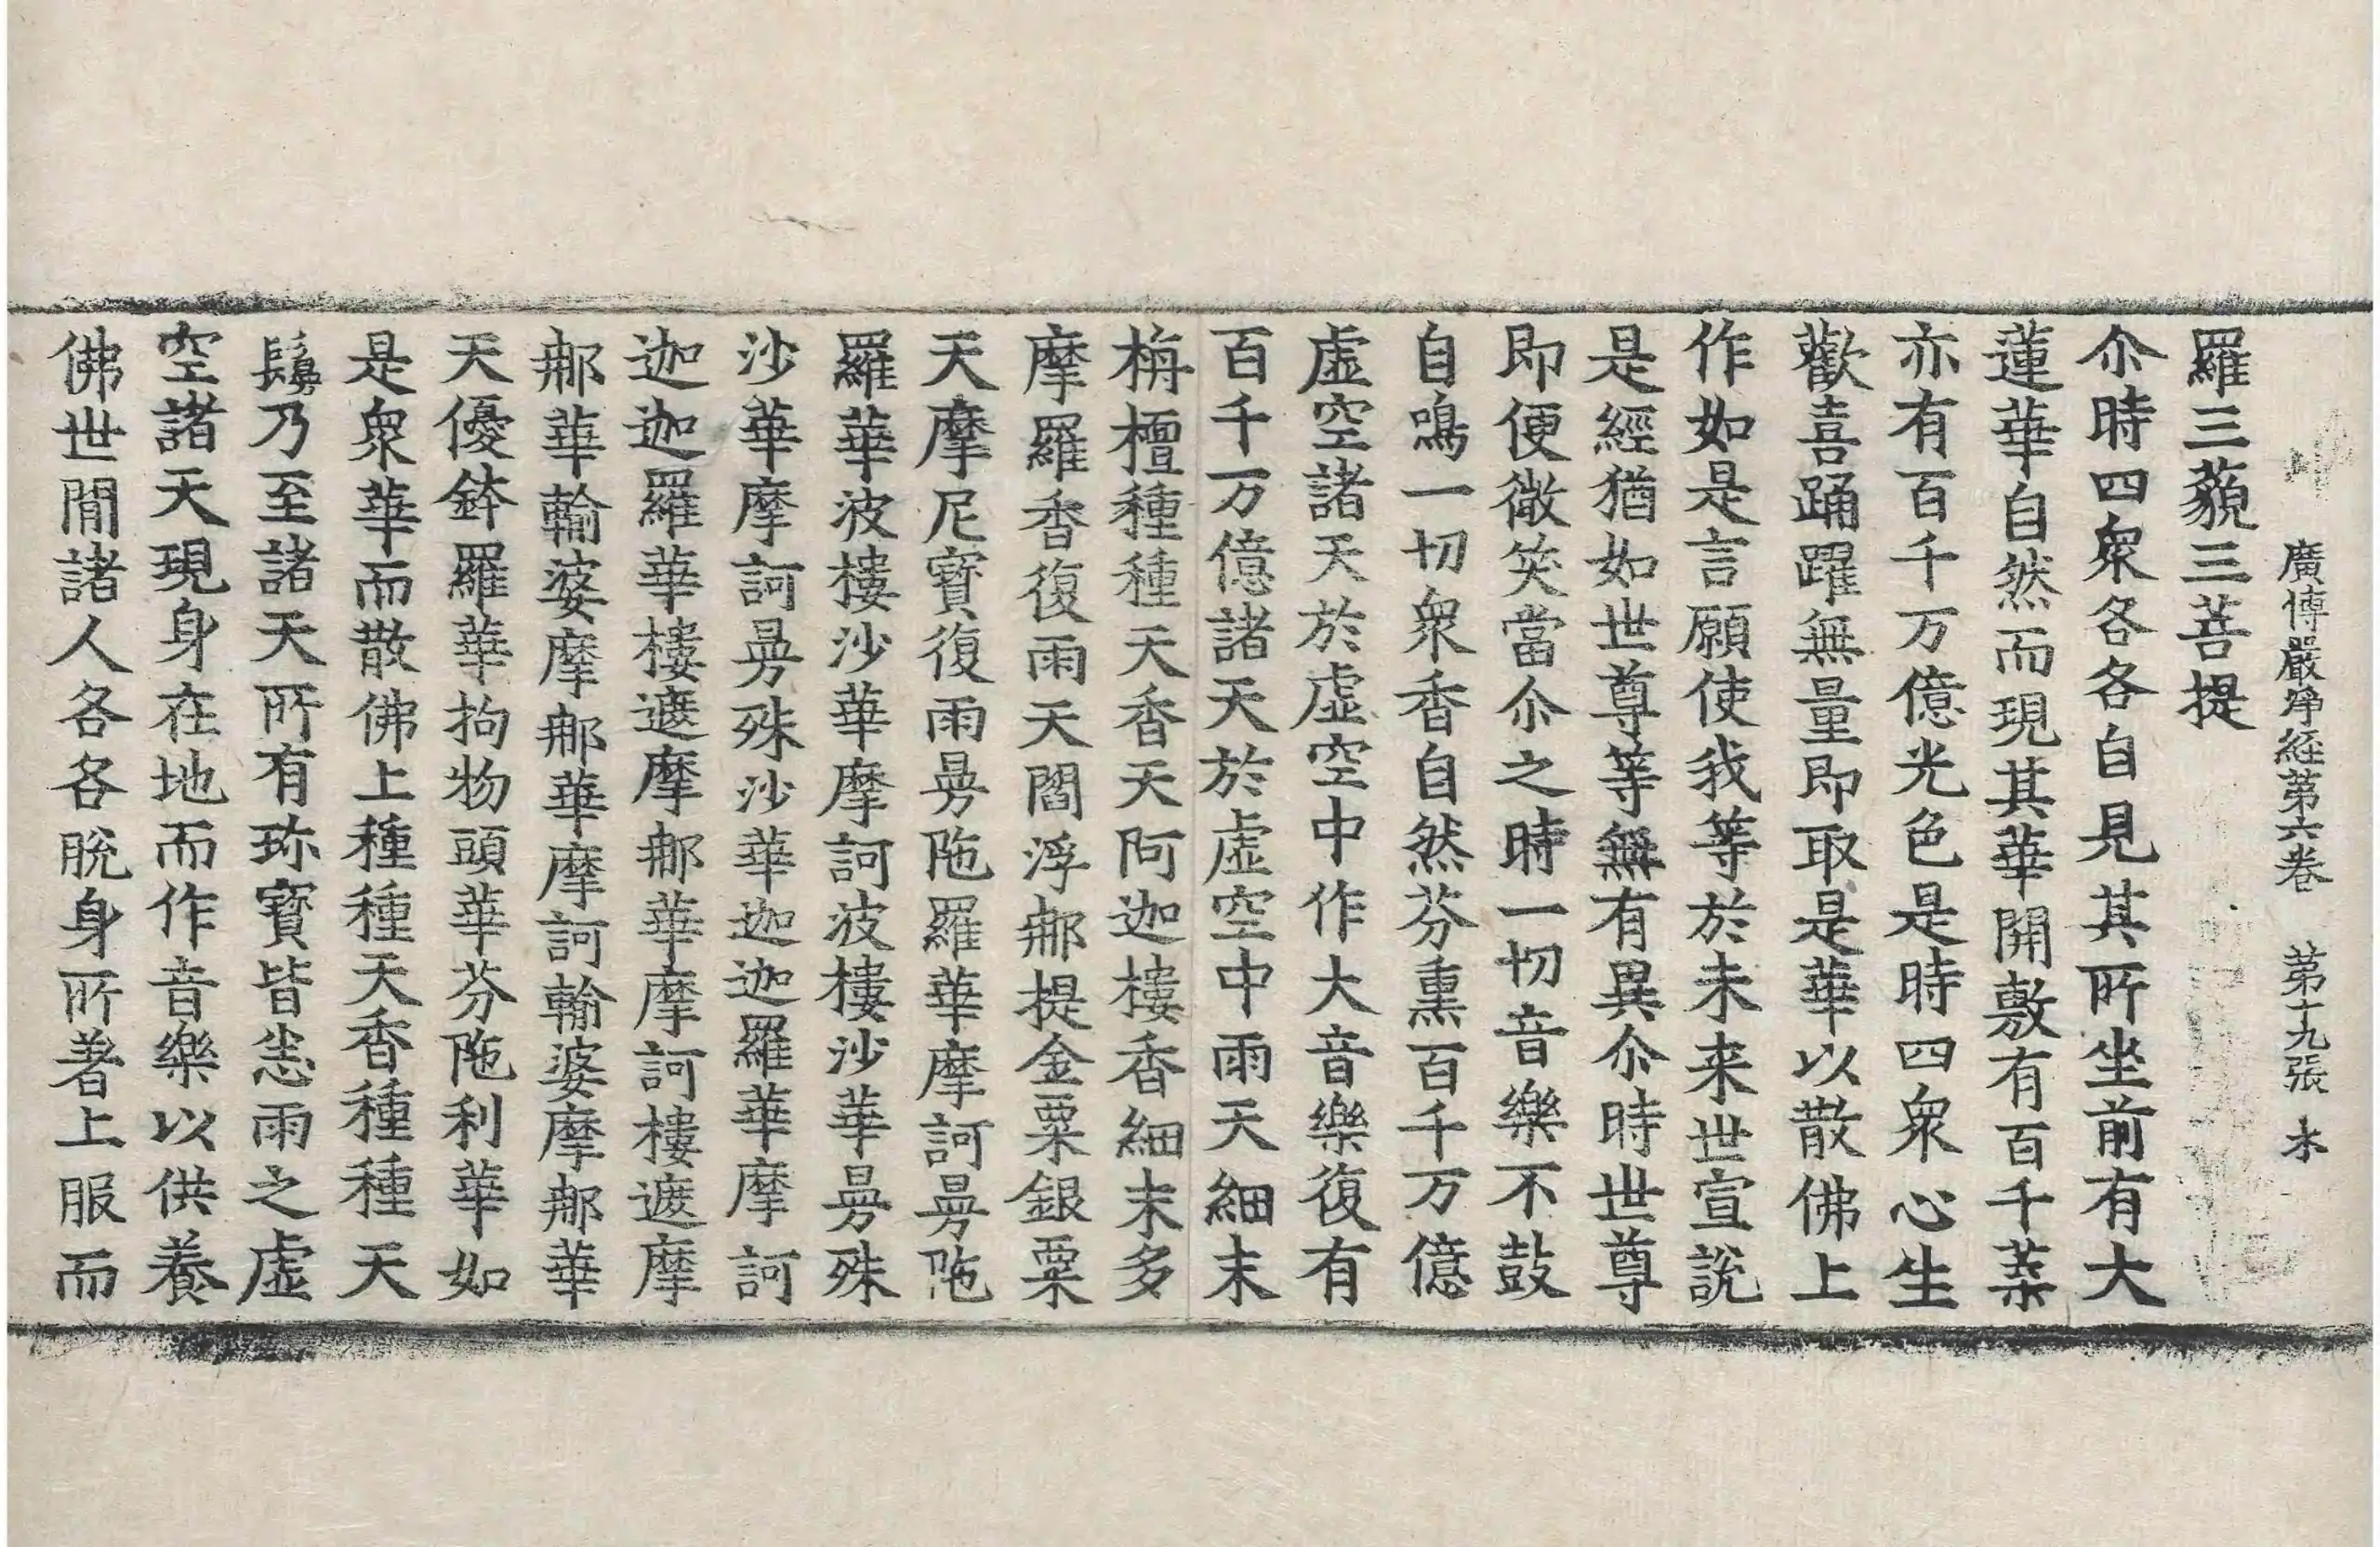 廣博嚴淨経第六卷 第十九張 木
羅三藐三菩提
尒時四衆各各自見其所坐前有大
蓮華自然而現其華開敷有百千葉
亦有百千万億光色是時四衆心生
歡喜踊躍無量即取是華以散佛上
作如是言願使我等於未来世宣說
是經猶如世尊等無有異尒時世尊
即便微笑當尒之時一切音樂不鼓
自鳴一切衆香自然芬熏百千万億
虛空諸天於虛空中作大音樂復有
百千万億諸天於虛空中雨天細末
栴檀種種天香天阿迦樓香細末多
摩羅香復雨天閻浮𨚗提金粟銀粟
天摩尼寶復雨曼陁羅華摩訶曼陁
羅華波樓沙華摩訶波樓沙華曼殊
沙華摩訶曼殊沙華迦迦羅華摩訶
迦迦羅華樓遮摩𨚗華摩訶樓遮摩
𨚗華輸婆摩𨚗華摩訶輸婆摩𨚗華
天優鉢羅華拘物頭華芬陁利華如
是衆華而散佛上種種天香種種天
鬘乃至諸天所有珎寶皆悉雨之虛
空諸天現身在地而作音樂以供養
佛世間諸人各各脫身所著上服而